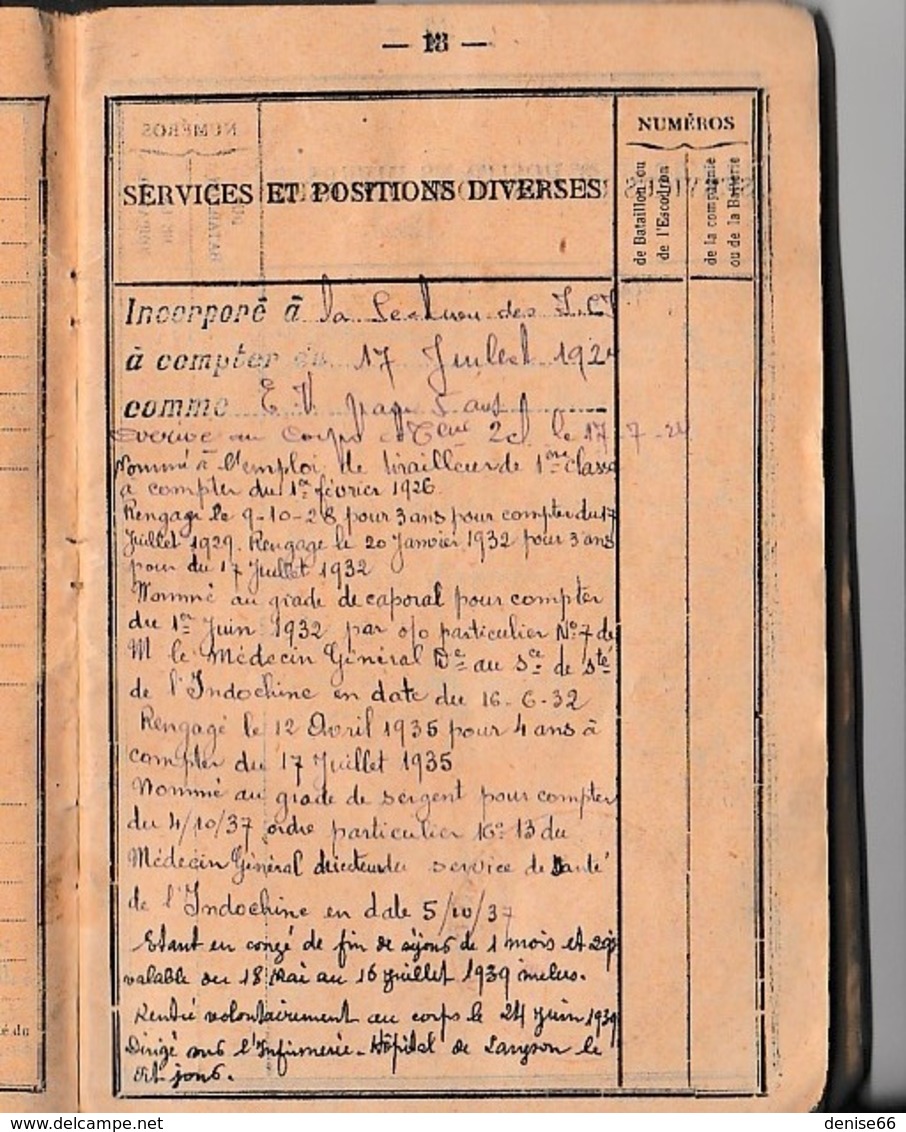 — 13 —
NUMÉROS
SERVICES ET POSITIONS DIVERSES
de Bataillon ou
de l'Escadron
de la compagnie
ou de la Batterie
Incorporé à la Section des
à compter du 17 Juillet 192
comme E. V. 5 ans
au Corps et 2 cl le 17-7-24
Nommé à l'emploi de tirailleur de 1ère classe
à compter du 1er février 1926
Rengagé le 9-10-28 pour 3 ans pour compter du 17
Juillet 1929. Rengagé le 20 Janvier 1932 pour 3 ans
pour du 17 Juillet 1932
Nommé au grade de caporal pour compter
du 1er Juin 1932 par o/o particulier No 7 de
M le Médecin Général De au Sce de Sté
de l'Indochine en date du 16-6-32
Rengagé le 12 Avril 1935 pour 4 ans à
compter du 17 Juillet 1935
Nommé au grade de sergent pour compter
du 4/10/37 ordre particulier No 13 du
Médecin Général directeur du service de Santé
de l'Indochine en date 5/10/37
Etant en congé de fin de séjour de 1 mois et 29js
valable du 18 Mai au 16 juillet 1939 inclus.
Rentré volontairement au corps le 24 juin 1939
Dirigé sur l'Infirmerie-Hôpital de Langson le
dit jour.
é du
denise66